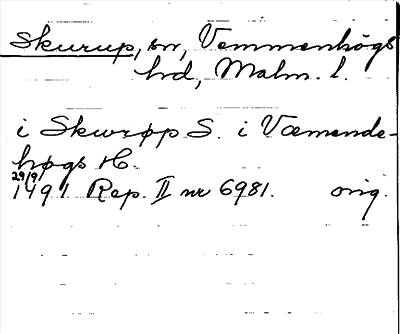 Skurup, sn, Vemmenhögs
hd, Malm. l.
i Skwrøpp S. i Væmende-
høgs H.
29/9
1491 Rep. II nr 6981. orig.